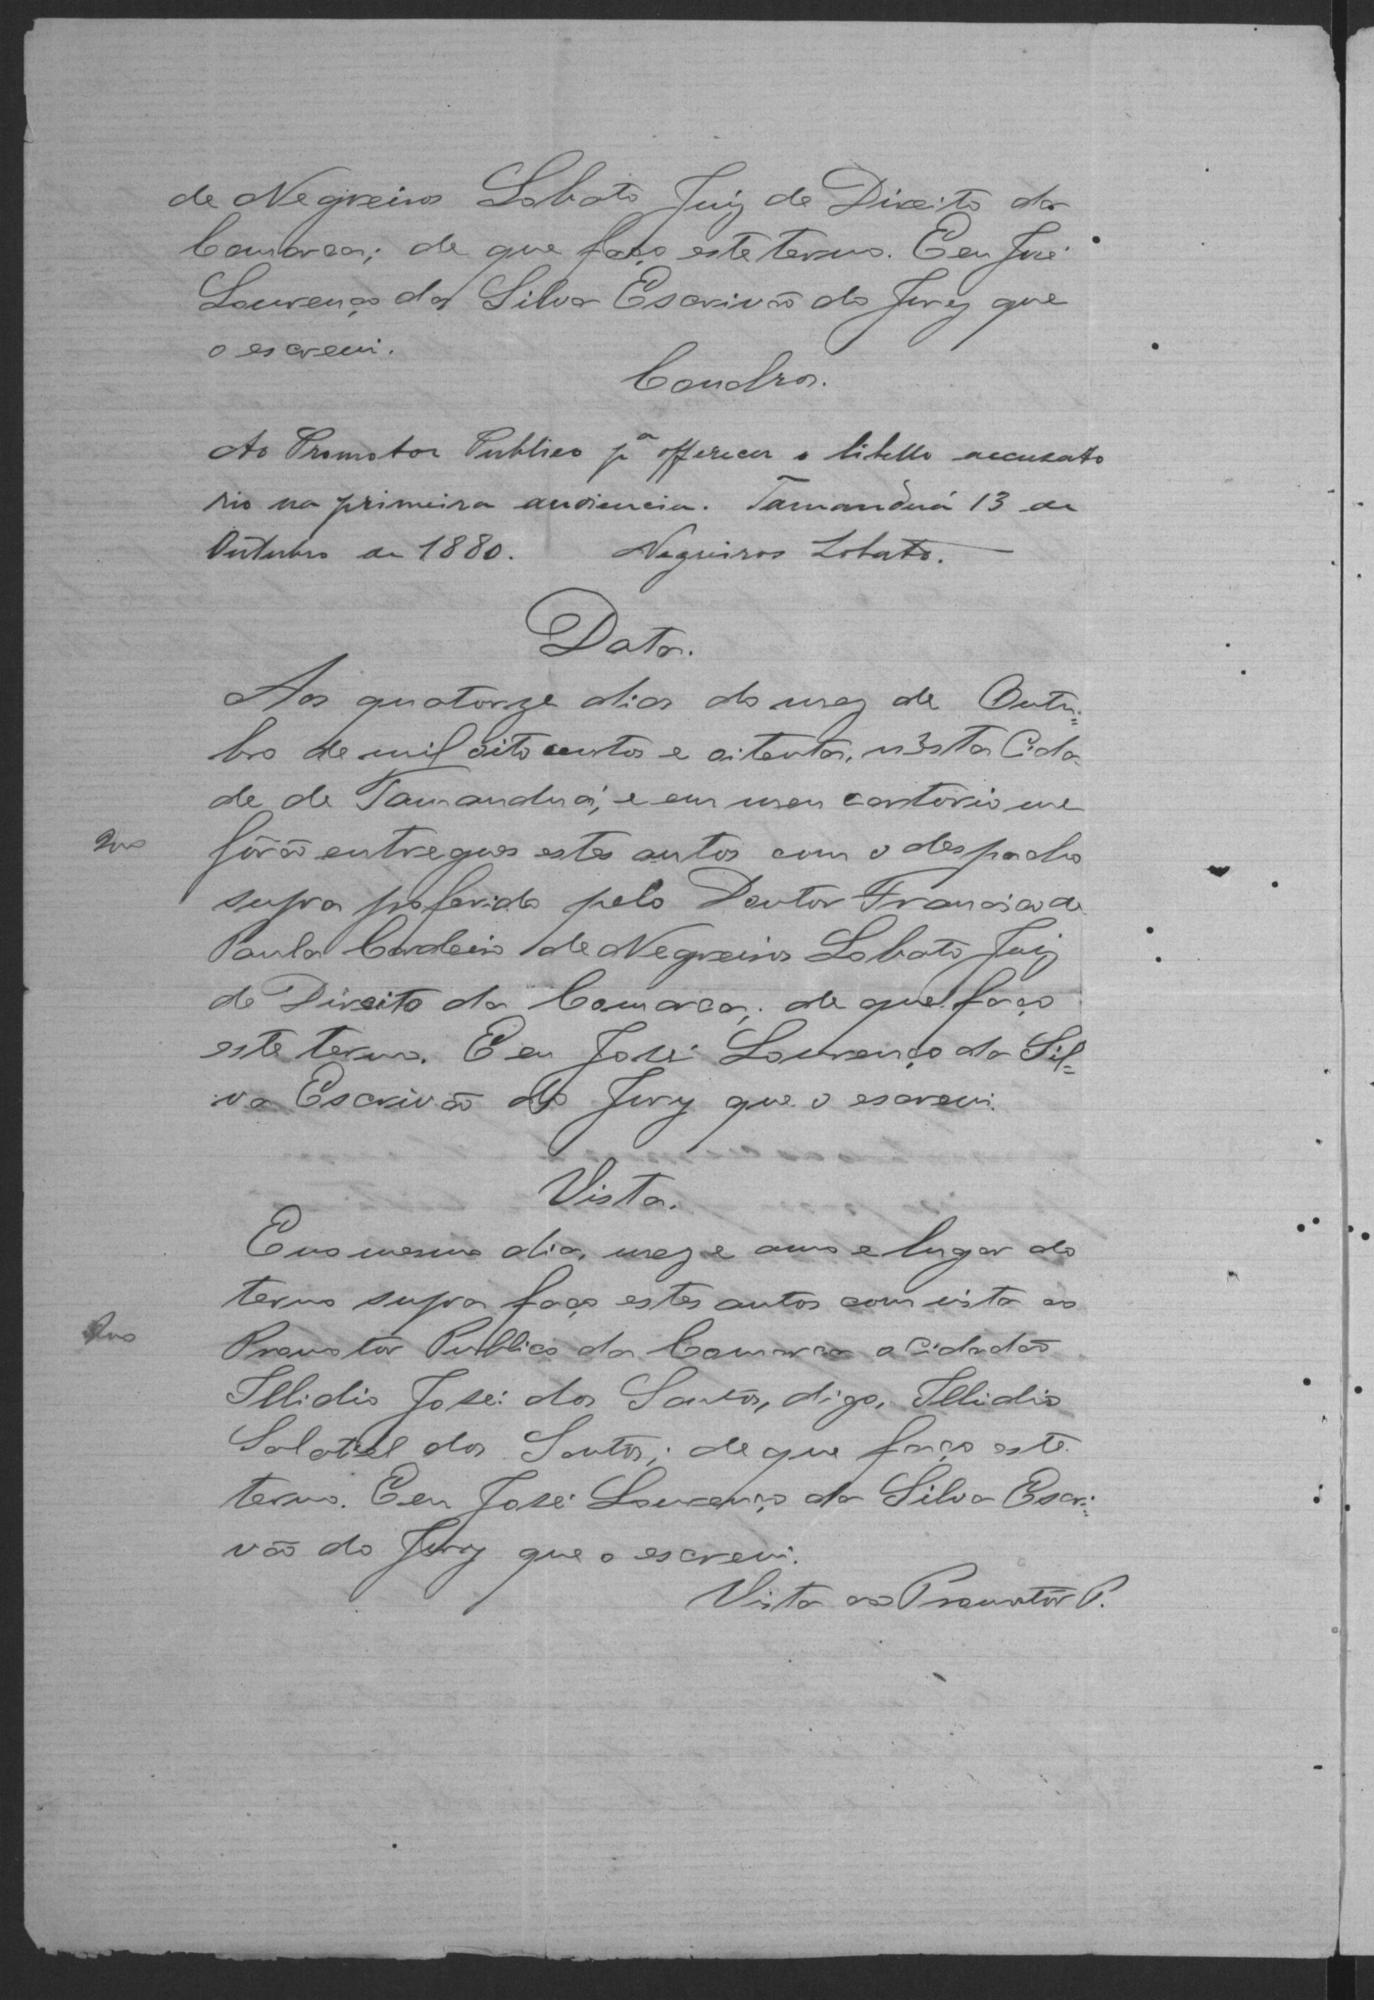 de Negreiros Lobato Juiz de Direito da
Comarca; de que faço este termo. E eu José
Lourenço da Silva Escrivão do Jury que
o escrevi.
Conclzos.
Ao Promotor Publico pª offerecer o libello accusato
rio na primeira audiencia. Tamanduá 13 de
Outubro de 1880. Negreiros Lobato.
Data.
Aos quatorze dias do mez de Outu=
bro de mil oito centos e oitenta, n'ésta Cida
de de Tamanduá, e em meu cartorio me
fôrão entregues estes autos com o despacho
supra proferido pelo Doutor Francisco de
Paula Cordeiro de Negreiros Lobato Juiz
de Direito da Comarca; de que faço
este termo. E eu José Lourenço da Sil=
va Escrivão do Jury que o escrevi.
Vista.
E no mesmo dia, mez e anno e lugar do
termo supra faço estes autos com vista ao
Promotôr Publico da Comarca o Cidadão
Illidio José dos Santos, digo, Illidio
Salatiel dos Santos; de que faço este
termo. E eu José Lourenço da Silva Escri=
vão do Jury que o escrevi.
Vista ao Promotôr P.